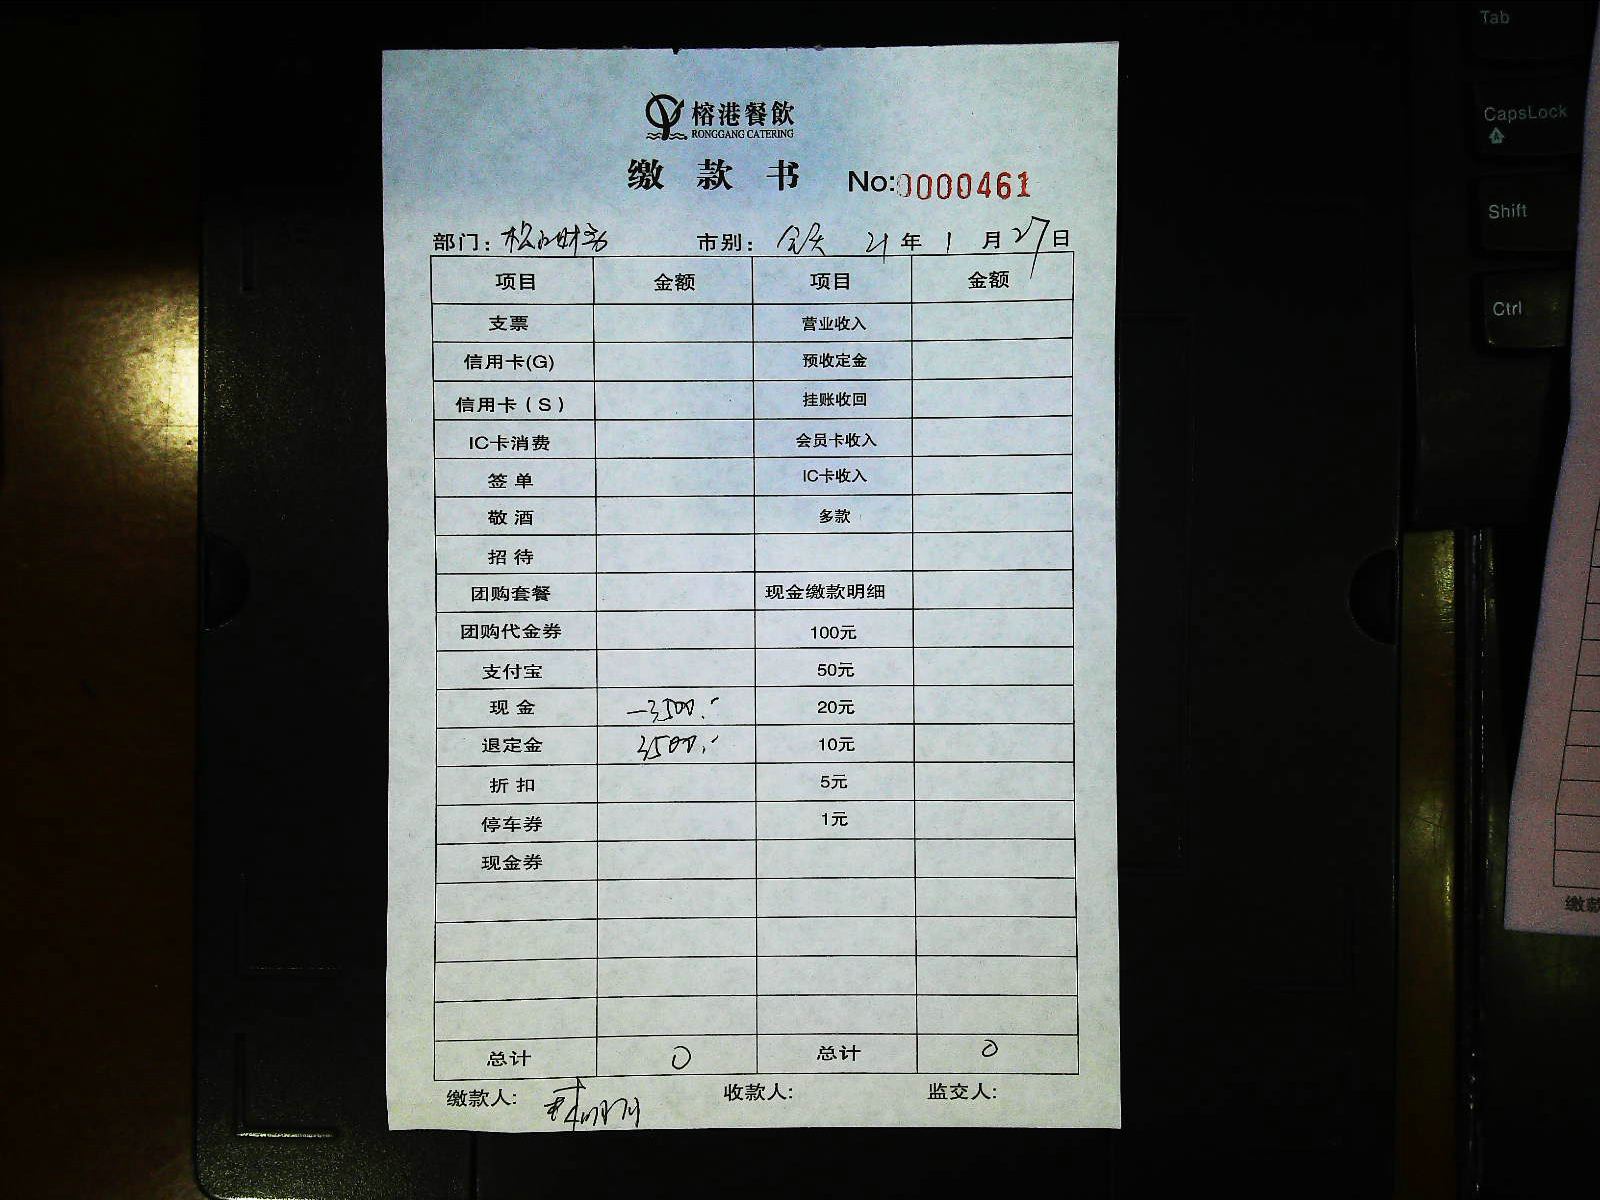 榕港餐飲
RONGGANG CATERING
缴款书 No:0000461
部门: 财务 市别: 全天 21年1月27日
项目 金额 项目 金额
支票 营业收入
信用卡(G) 预收定金
信用卡(S) 挂账收回
IC卡消费 会员卡收入
签单 IC卡收入
敬酒 多款
招待
团购套餐 现金缴款明细
团购代金券 100元
支付宝 50元
现金 -3500.- 20元
退定金 3500.- 10元
折扣 5元
停车券 1元
现金券
总计 0 总计 0
缴款人: 收款人: 监交人:
Tab
CapsLock
A
Shift
Ctrl
缴款